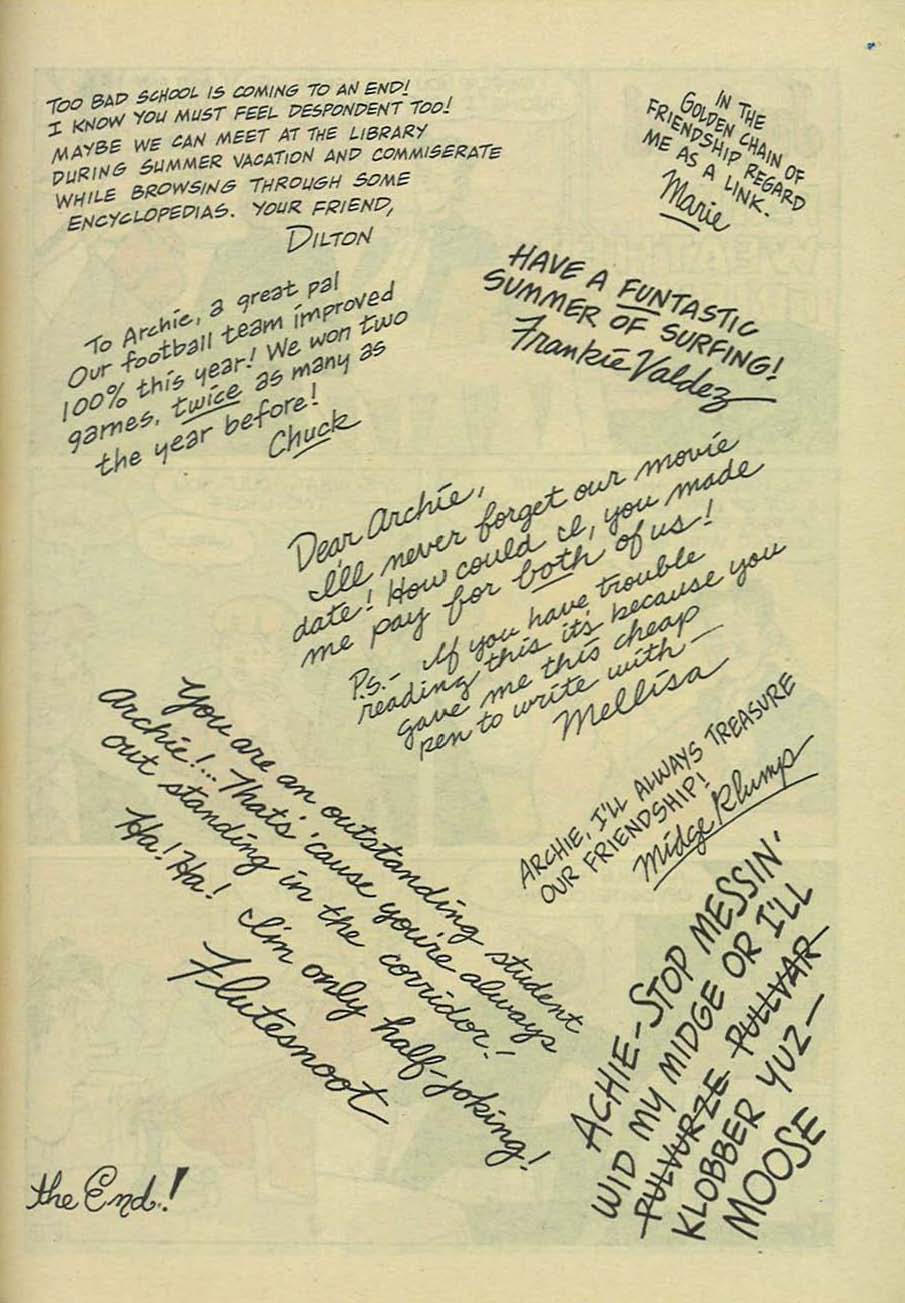 TOO BAD SCHOOL IS COMING TO AN END!
I KNOW YOU MUST FEEL DESPONDENT TOO!
MAYBE WE CAN MEET AT THE LIBRARY
DURING SUMMER VACATION AND COMMISERATE
WHILE BROWSING THROUGH SOME
ENCYCLOPEDIAS. YOUR FRIEND,
DILTON
IN THE
GOLDEN CHAIN OF
FRIENDSHIP REGARD
ME AS A LINK.
Marie
HAVE A FUNTASTIC
SUMMER OF SURFING!
Frankie Valdez
To Archie, a great pal
Our football team improved
100% this year! We won two
games, twice as many as
the year before!
Chuck
Dear Archie,
I'll never forget our movie
date! How could I, you made
me pay for both of us!
P.S.- If you have trouble
reading this it's because you
gave me this cheap
pen to write with—
Mellisa
You are an outstanding student
Archie!... Thats' 'cause you're always
out standing in the corridor!
Ha! Ha! I'm only half-joking!
Flutesnoot
ARCHIE, I'LL ALWAYS TREASURE
OUR FRIENDSHIP!
Midge Klump
ACHIE-STOP MESSIN'
WID MY MIDGE OR I'LL
PULVURZE PULLVAR
KLOBBER YUZ—
MOOSE
the End.!